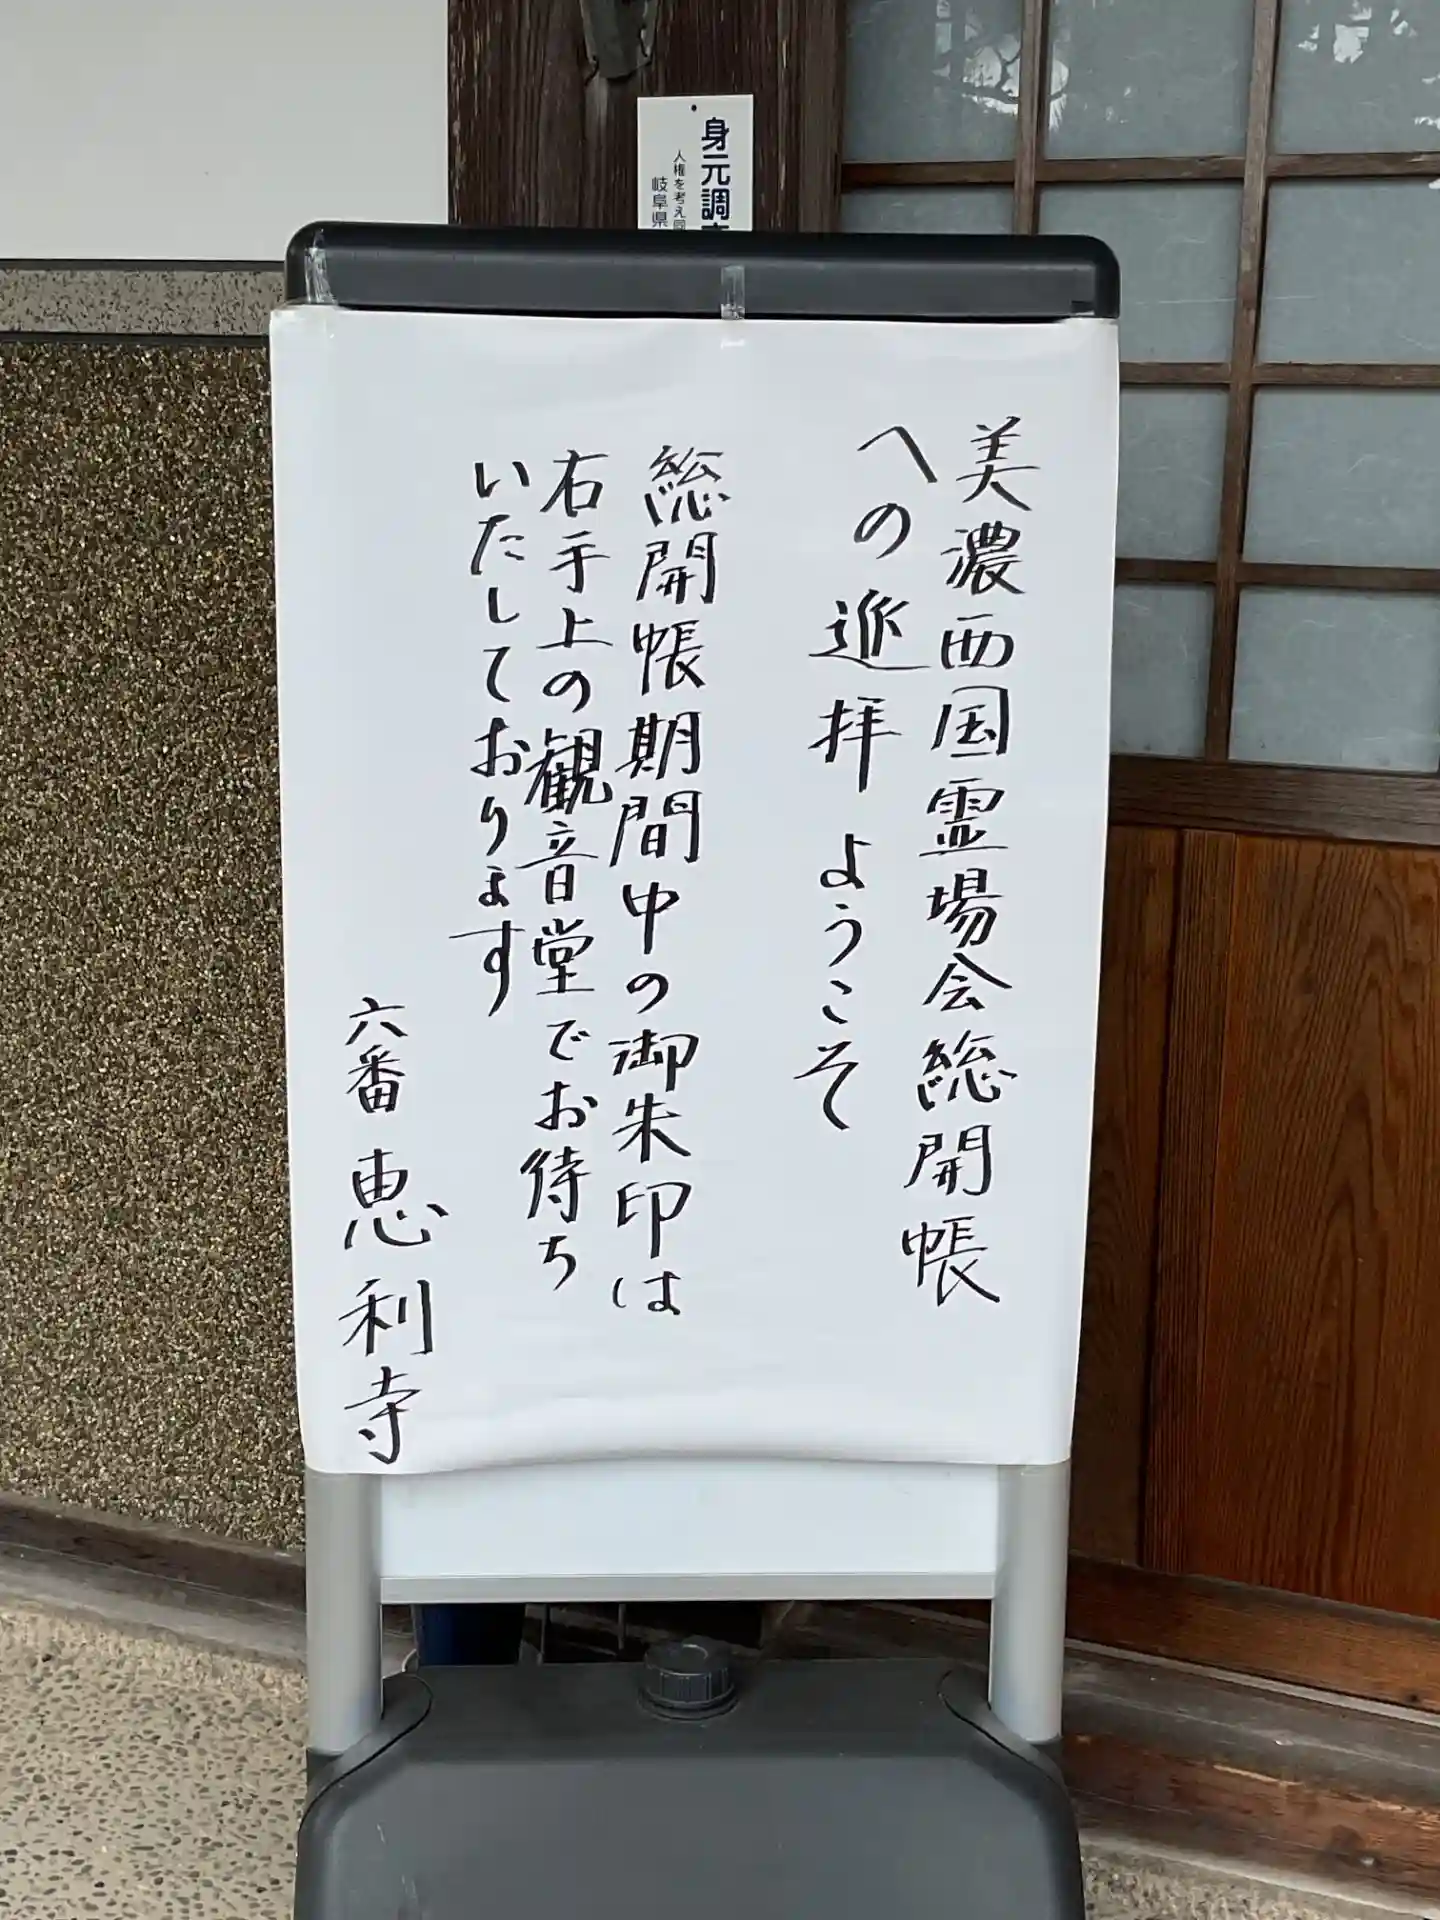 美濃西国霊場会総開帳
への巡拝ようこそ
総開帳期間中の御朱印は
右手上の観音堂でお待ち
いたしております
六番 恵利寺
身元調
人権を考え
岐阜県